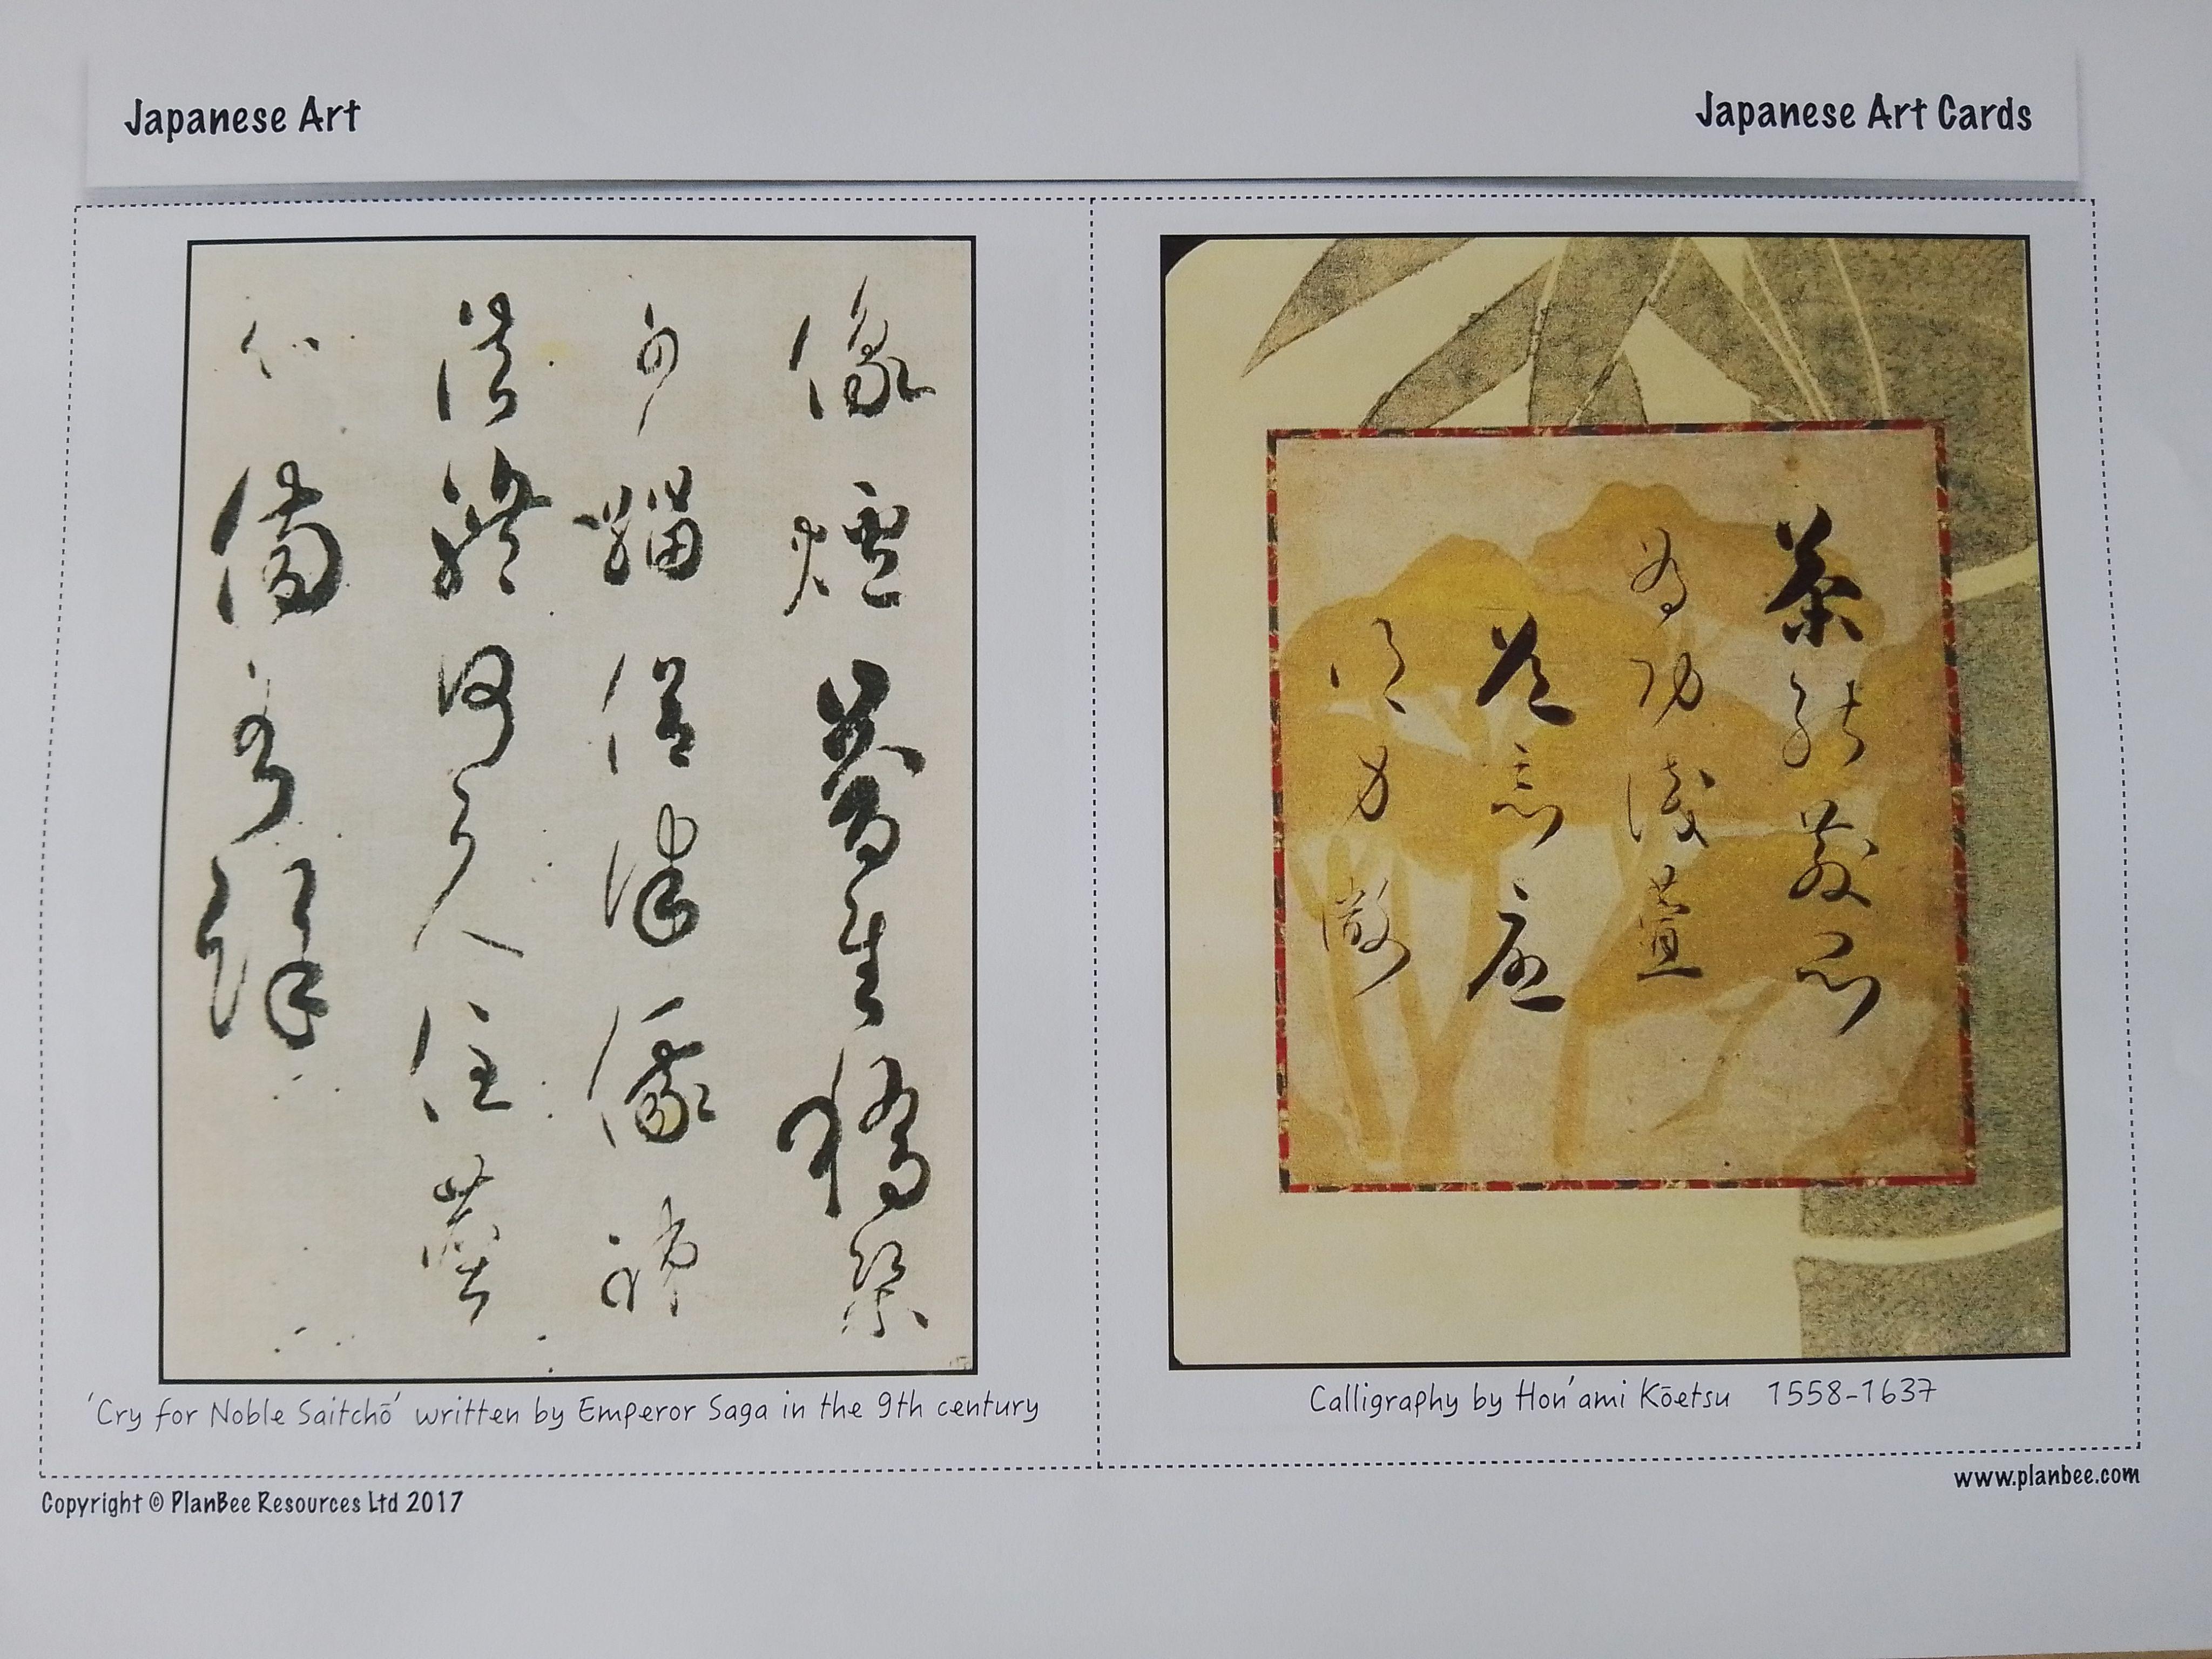 Japanese Art
Japanese Art Cards
像爐蒼生橋梁
少緇侶律儀疎
法體何久住塵
心傷有餘
'Cry for Noble Saitchō' written by Emperor Saga in the 9th century
茶能散悶
為功浅萱
忘
得力微
Calligraphy by Hon'ami Kōetsu 1558-1637
Copyright © PlanBee Resources Ltd 2017
www.planbee.com